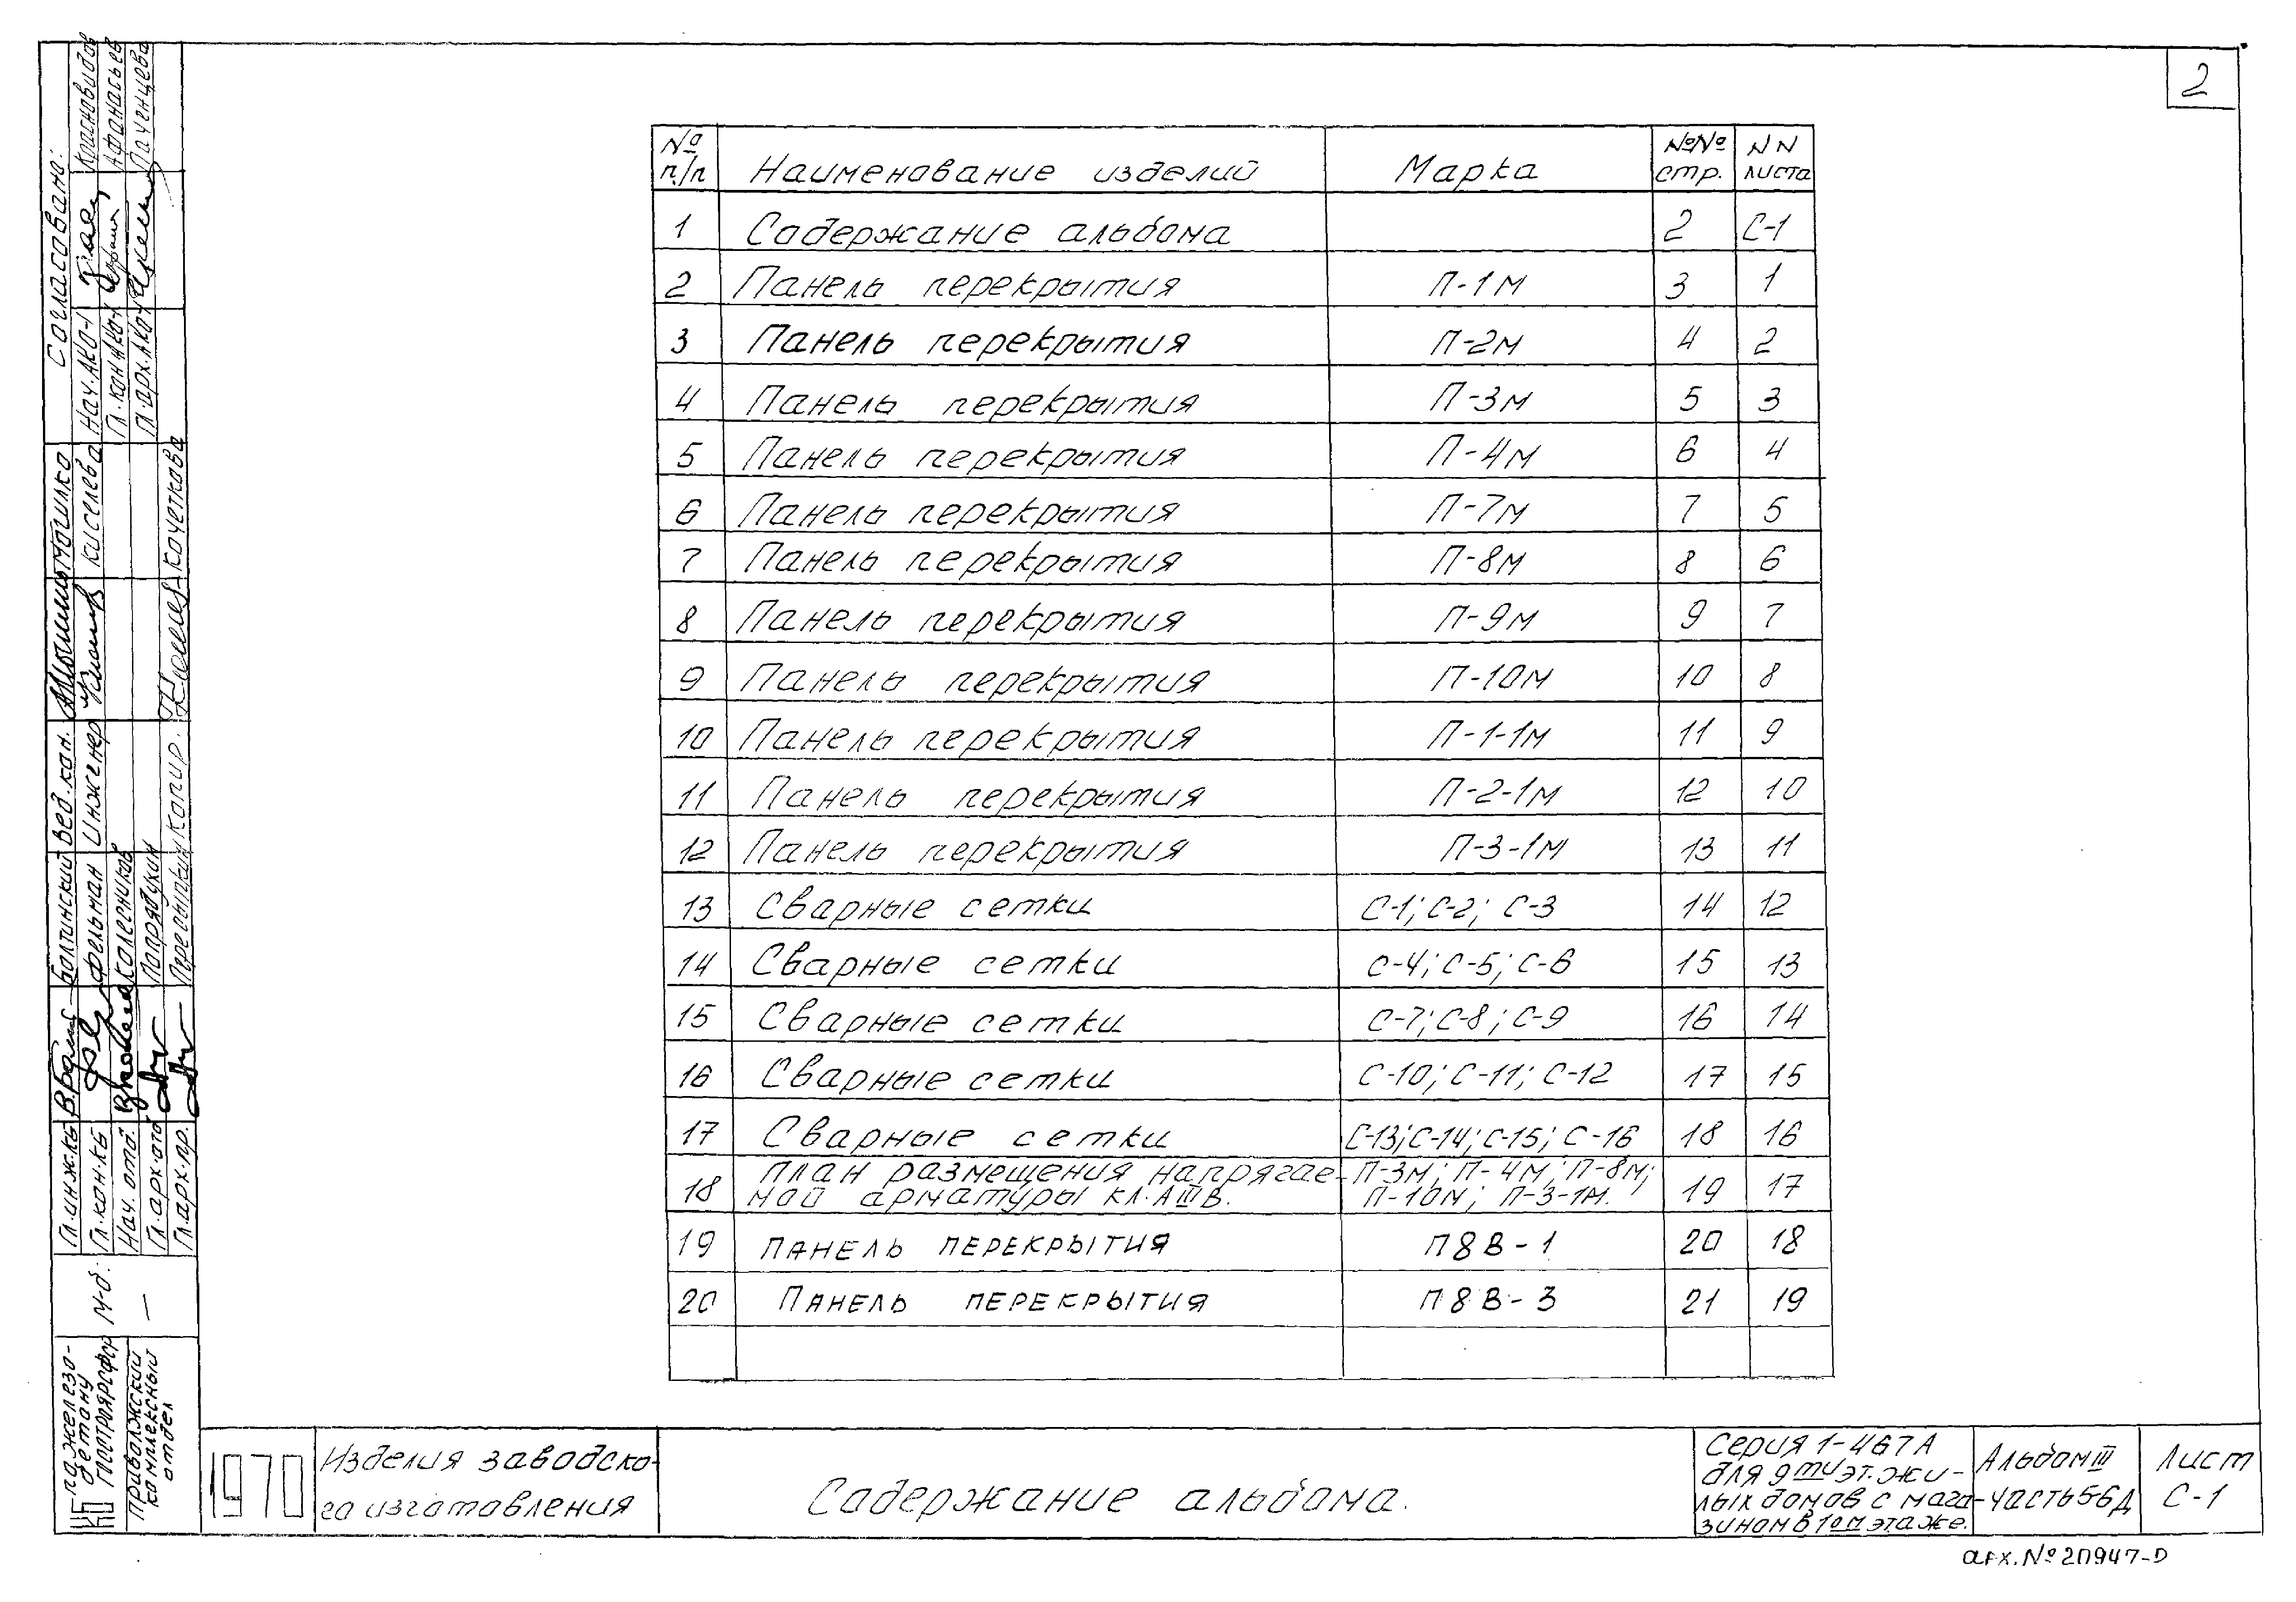 2
№ п/п Наименование изделий Марка №№ стр. NN листа
1 Содержание альбома 2 С-1
2 Панель перекрытия П-1м 3 1
3 Панель перекрытия П-2м 4 2
4 Панель перекрытия П-3м 5 3
5 Панель перекрытия П-4м 6 4
6 Панель перекрытия П-7м 7 5
7 Панель перекрытия П-8м 8 6
8 Панель перекрытия П-9м 9 7
9 Панель перекрытия П-10м 10 8
10 Панель перекрытия П-1-1м 11 9
11 Панель перекрытия П-2-1м 12 10
12 Панель перекрытия П-3-1м 13 11
13 Сварные сетки С-1; С-2; С-3 14 12
14 Сварные сетки С-4; С-5; С-6 15 13
15 Сварные сетки С-7; С-8; С-9 16 14
16 Сварные сетки С-10; С-11; С-12 17 15
17 Сварные сетки С-13; С-14; С-15; С-16 18 16
18 План размещения напрягае- П-3м; П-4м; П-8м; 19 17
мой арматуры кл. АIIIв. П-10м; П-3-1м.
19 ПАНЕЛЬ ПЕРЕКРЫТИЯ П8В-1 20 18
20 ПАНЕЛЬ ПЕРЕКРЫТИЯ П8В-3 21 19
1970
Изделия заводско-
го изготовления
Содержание альбома.
Серия 1-467А
для 9ти эт. жи-
лых домов с мага-
зином в 1ом этаже.
Альбом III
Часть 5-6д
Лист
С-1
арх. № 20947-D
Согласовано:
Нач. АКО-1 Красновидов
Гл. кон. АКО-1 Афанасьев
Гл. арх. АКО-1 Паченцева
Вед. кон. Могилко
Инженер Киселева
Копир. Кочеткова
Гл. инж. КБ Болтинский
Гл. кон. КБ Фельман
Нач. отд. Колесников
Гл. арх. отд. Попрядухин
Гл. арх. пр.
М-б: —
КБ по железо-
бетону
Госстроя РСФСР
Приволжский
комплексный
отдел